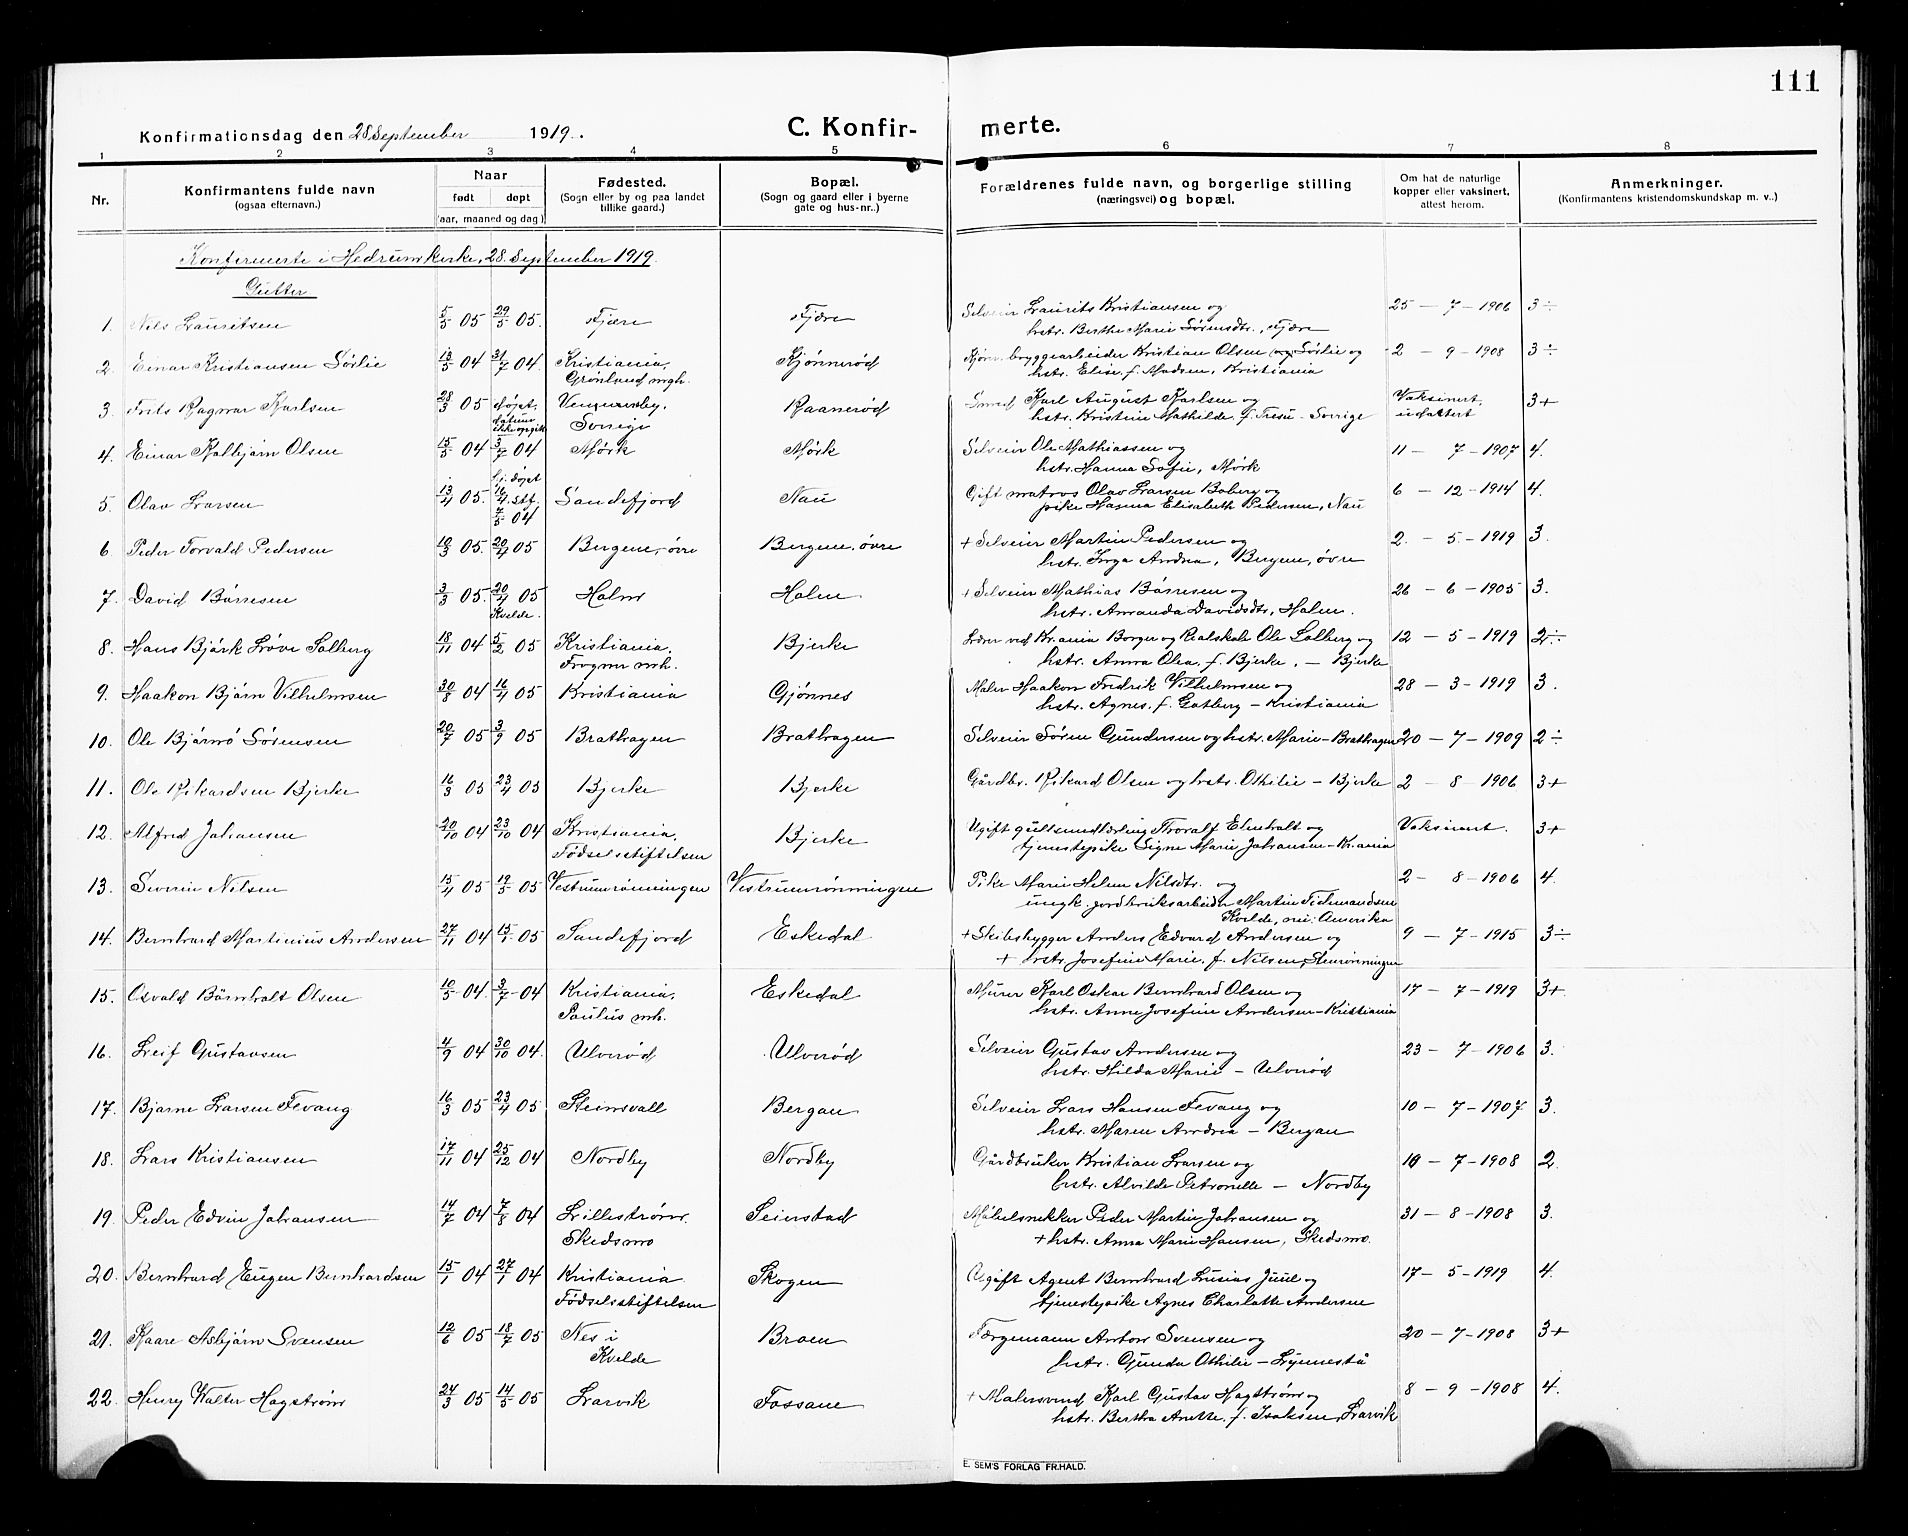 111
Konfirmationsdag den 28 September 1919.
C. Konfirmerte.
1 2 3 4 5 6 7 8
Nr.
Konfirmantens fulde navn
(ogsaa efternavn.)
Naar
født døpt
(aar, maaned og dag)
Fødested.
(Sogn eller by og paa landet
tillike gaard.)
Bopæl.
(Sogn og gaard eller i byerne
gate og hus-nr..)
Forældrenes fulde navn, og borgerlige stilling
(næringsvei) og bopæl.
Om hat de naturlige
kopper eller vaksinert,
attest herom.
Anmerkninger.
(Konfirmantens kristendomskundskap m. v..)
Konfirmerte i Hedrum kirke, 28. September 1919.
Gutter
1. Nils Lauritsen 5/5 05 29/5 05. Fjære Fjære Selveier Laurits Kristiansen og 25 - 7 - 1906 3÷
hstr. Berthe Marie Sørensdtr., Fjære
2. Einar Kristiansen Sørlie 13/5 04 31/7 04. Kristiania, Kjønnerød Kjørn. bryggearbeider Kristian Olsen Sørlie og 2 - 9 - 1908 3÷
Grønland mgh. hstr. Elise, f. Madsen, Kristiania
3. Frits Ragnar Karlsen 28/3 05 døpt. datum ikke opgit Sverige Raanerød Smed Karl August Karlsen og Vaksinert, 3+
hstr. Kristine Mathilde, f. Tresu - Sverige udattert
4. Einar Kolbjørn Olsen 15/5 04 3/7 04 Mørk Mørk Selveier Ole Mathiassen og 11 - 7 - 1907 4.
hstr. Hanna Sofie, Mørk
5. Olav Larsen 13/4 05. hj. døpt 16/4 stf. 7/5 04 Sandefjord Nau Gift matros Olav Larsen Boberg og 6 - 12 - 1914 4.
pike Hanna Elisabeth Pedersen, Nau
6. Peder Torvald Pedersen 10/3 05. 20/4 05 Bergene, øvre Bergene, øvre + Selveier Martin Pedersen og 2. - 5. - 1919 3.
hstr. Inga Andrea, Bergene, øvre
7. David Børresen 3/3 05. 20/4 05 Kvelde. Holm Holm + Selveier Mathias Børresen og 26 - 6 - 1905 3.
hstr. Amanda Davidsdtr, Holm.
8. Hans Bjørk Løve Solberg 18/11 04 5/2 05 Kristiania, Bjerke Lærer ved Kr.ania Borger og Realskole Ole Solberg og 12 - 5 - 1919 2÷
Frogner mh. hstr. Anna Olea, f. Bjerke, - Bjerke
9. Haakon Bjørn Vilhelmsen 30/8 04 16/4 05 Kristiania Gjønnes Maler Haakon Fredrik Vilhelmsen og 28 - 3 - 1919 3.
hstr. Agnes, f. Gotberg - Kristiania
10. Ole Bjarnø Sørensen 20/7 05 3/9 05 Brathagen Brathagen Selveier Søren Gundersen og hstr. Marie - Brathagen 20 - 7 - 1909 2÷
11. Ole Rikardsen Bjerke 16/3 05 23/4 05 Bjerke Bjerke Gårdbr. Rikard Olsen og hstr. Othilie - Bjerke 2 - 8 - 1906 3+
12. Alfred Johansen 20/10 04 23/10 04 Kristiania, Bjerke Ugift gullsmedlærling Thoralf Elmholt og Vaksinert. 3+
Fødselsstiftelsen tjenestepike Signe Marie Johansen - Kr.ania
13. Severin Nilsen 15/4 05 19/5 05 Vestrumrønningen Vestrumrønningen Pike Marie Helene Nilsdtr. og 2 - 8 - 1906 4.
ungk. jordbruksarbeider Martin Tidemandsen
Kvelde, nu: Amerika
14. Bernhard Martinius Andersen 27/11 04 15/1 05 Sandefjord Eskedal + Skibsbygger Anders Edvard Andersen og 9 - 7 - 1915 3÷
+ hstr. Josefine Marie, f. Nilsen, Stenrønningen
15. Osvald Bernholt Olsen 10/5 04. 3/7 04 Kristiania, Eskedal Murer Karl Oskar Bernhard Olsen og 17 - 7 - 1919 3+
Paulus mh. hstr. Anne Josefine Andersen - Kristiania
16. Leif Gustavsen 4/9 04 30/10 04. Ulverød Ulverød Selveier Gustav Andersen og 23 - 7 - 1906 3.
hstr. Hilda Marie - Ulverød
17. Bjarne Larsen Fevang 16/3 05 23/4 05 Steinsvall Bergan Selveier Lars Hansen Fevang og 10 - 7 - 1907 3.
hstr. Maren Andrea - Bergan
18. Lars Kristiansen 17/11 04 25/12 04 Nordby Nordby Gårdbruker Kristian Larsen og 10 - 7 - 1908 2.
hstr. Alvilde Petronelle - Nordby
19. Peder Edvin Johansen 14/7 04 7/8 04 Lillestrøm, Seierstad Møbelsnekker Peder Martin Johansen og 31 - 8 - 1908 3.
Skedsmo + hstr. Anna Marie Hansen, Skedsmo.
20. Bernhard Eugen Bernhardsen 15/1 04 27/1 04 Kristiania Skogen Ugift Agent Bernhard Lusias Juul og 17 - 5 - 1919 4.
Fødselsstiftelsen tjenestepike Agnes Charlotte Andersen
21. Kaare Asbjørn Svensen 12/6 05 18/7 05 Nes i Braen Færgemann Anton Svensen og 20 - 7 - 1908 3+
Kvelde hstr. Gunda Othilie - Lynnestå
22. Henry Walter Hagstrøm 24/3 05 14/5 05 Larvik Fossane + Malersvend Karl Gustav Hagstrøm og 8 - 9 - 1908 4.
hstr. Bertha Anette, f. Isaksen, Larvik
E. SEM'S FORLAG FR.HALD.